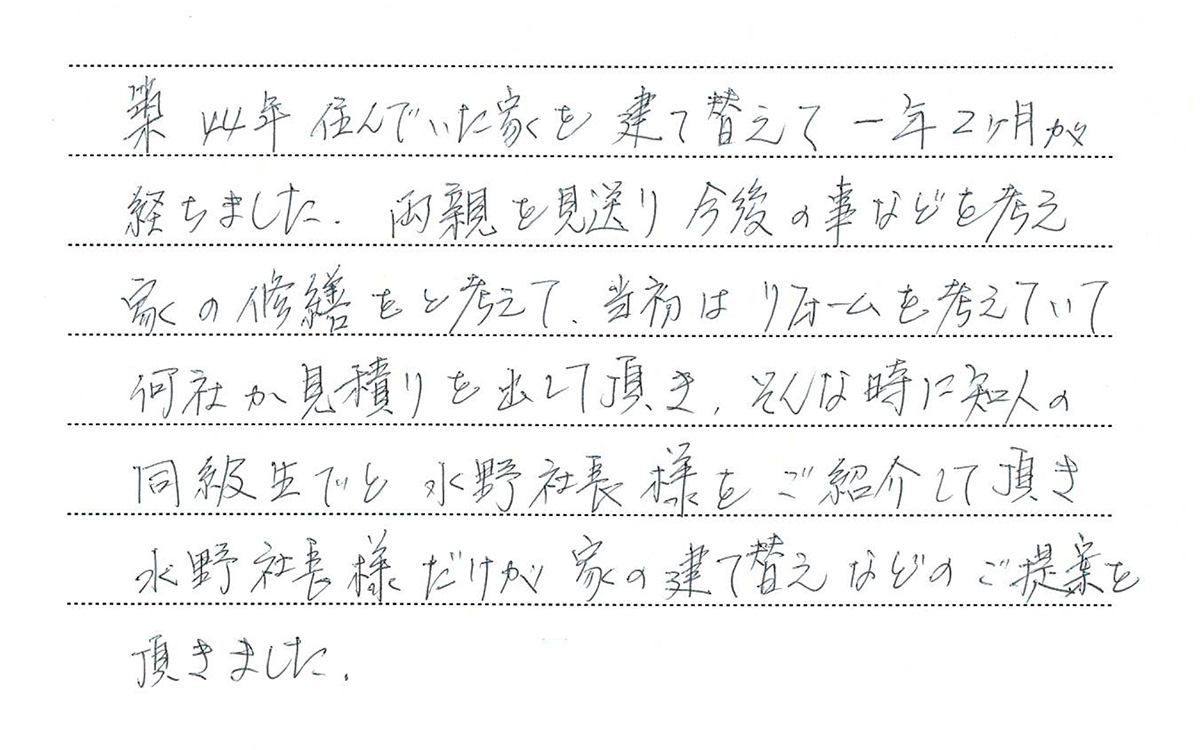 築44年住んでいた家を建て替えて一年2ヶ月が
経ちました. 両親を見送り今後の事などを考え
家の修繕をと考えて、当初はリフォームを考えていて
何社か見積りを出して頂き, そんな時に知人の
同級生でと水野社長様をご紹介して頂き
水野社長様だけが家の建て替えなどのご提案を
頂きました.